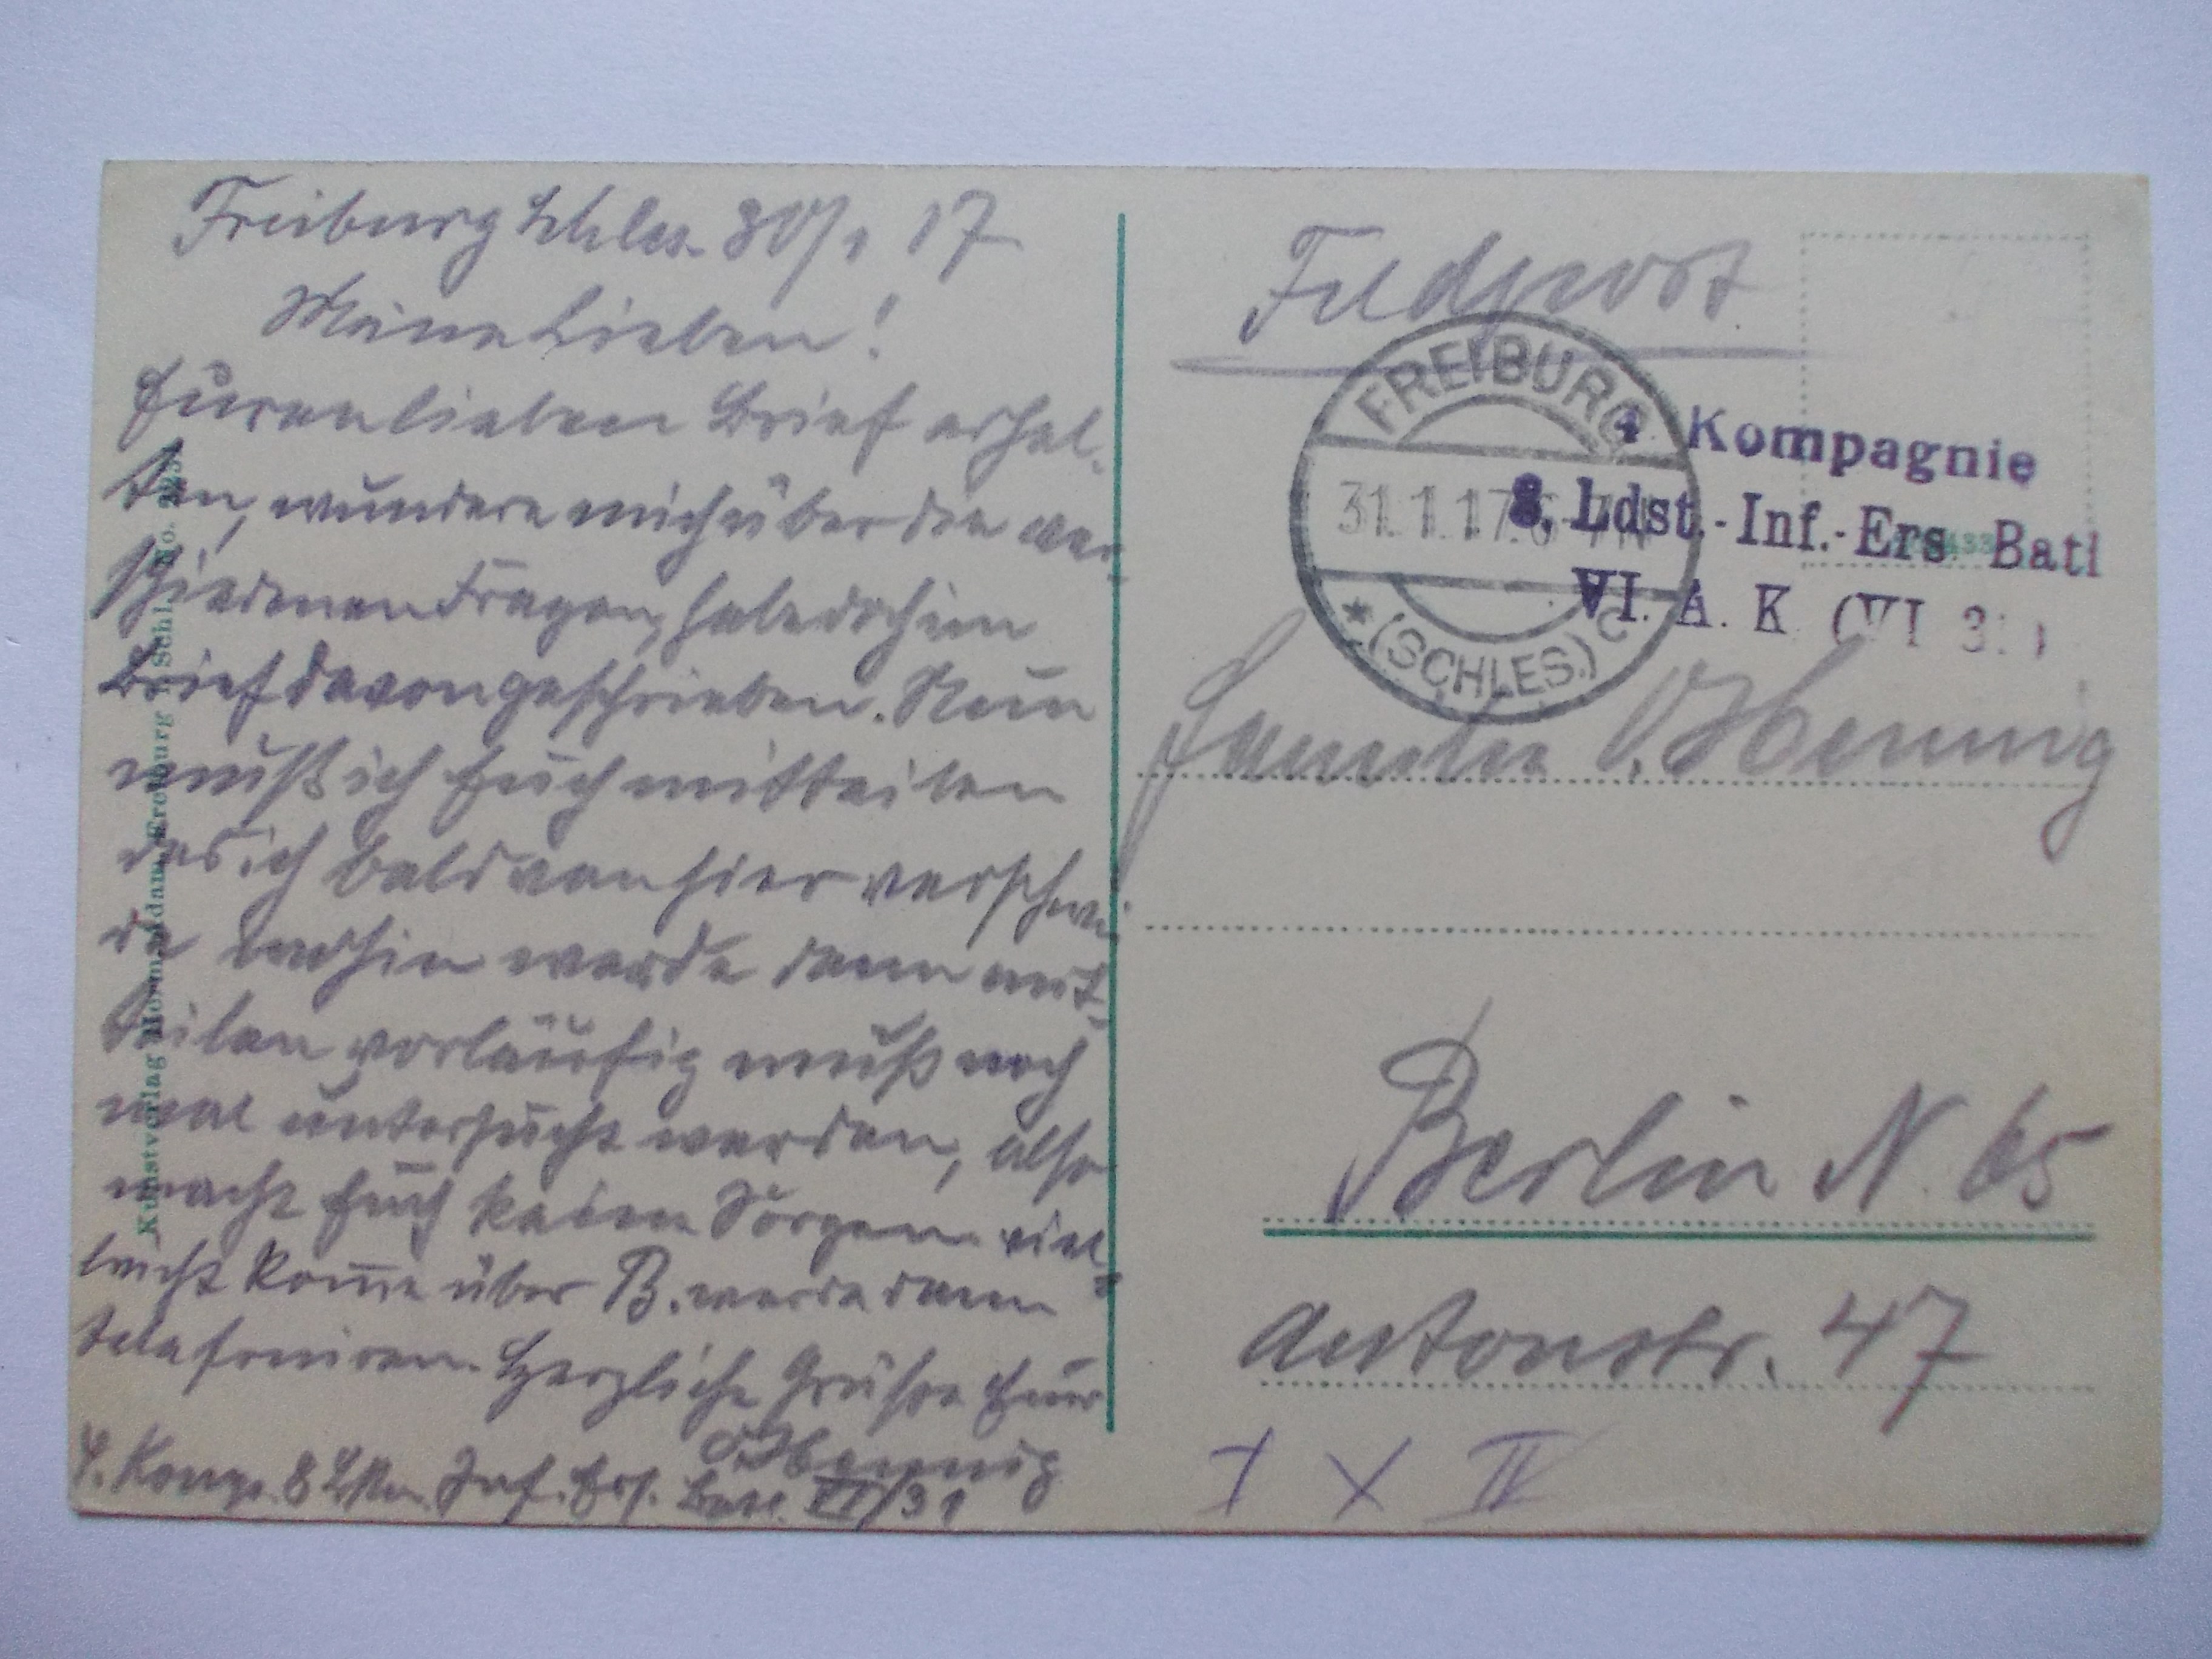 Freiburg Schles. 30/1 17
Meine Lieben!
Euren lieben Brief erhal-
ten, wundere mich über die ver-
schiedenen Fragen, habe doch im
Brief davon geschrieben. Nun
muß ich Euch mitteilen
das ich bald von hier verschwin-
de wohin werde dann mit-
teilen vorläufig muß noch
mal untersucht werden, also
macht Euch keine Sorgen viel-
leicht kome über B. werde dann
telefoniren. Herzliche Grüße Euer
O. Hennig
4. Komp. 8 Ldst. Inf. Ers. Batl. VI/31
Kunstverlag Freiburg Schl. No.
Feldpost
FREIBURG
31.1.17. 6-7N
* (SCHLES.) c
4. Kompagnie
8. Ldst.-Inf.-Ers. Batl
VI. A. K. (VI 31)
Familie O. Hennig
Berlin N. 65
Antonstr. 47
X II